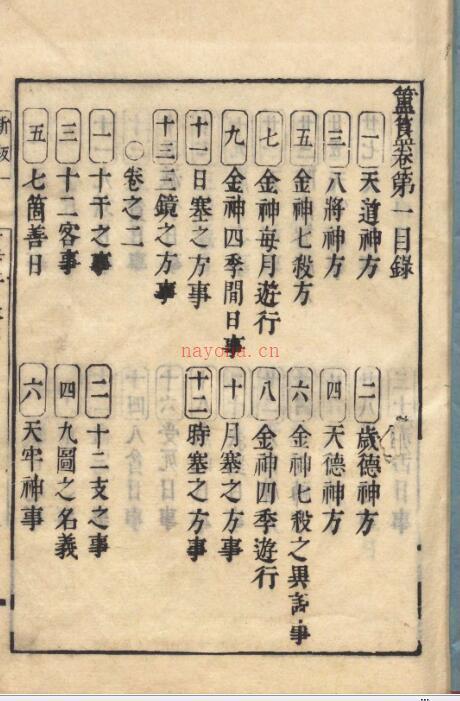 簠簋卷第一目錄
一 天道神方 二 歳德神方
三 八將神方 四 天德神方
五 金神七殺方 六 金神七殺之異説事
七 金神每月遊行 八 金神四季遊行
九 金神四季間日事 十 月塞之方事
十一 日塞之方事 十二 時塞之方事
十三 三鏡之方事
○卷之二
一 十干之事 二 十二支之事
三 十二客事 四 九圖之名義
五 七箇善日 六 天牢神事
nayona.cn